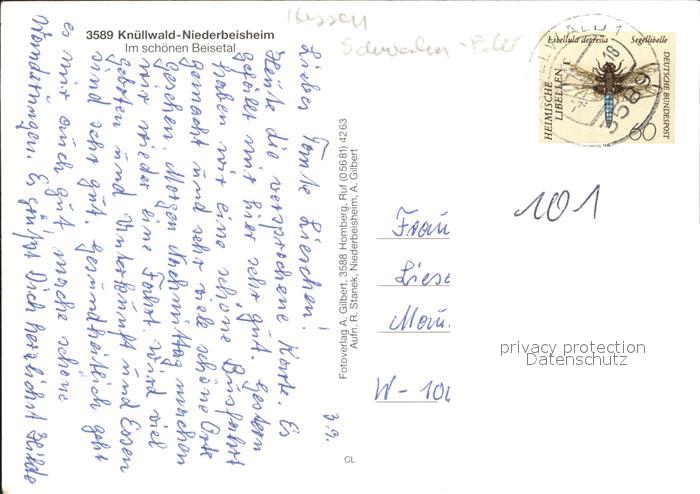 3589 Knüllwald-Niederbeisheim
Im schönen Beisetal
Hessen
Schwalm-Eder
Liebe Tante Lieschen!
Heute die versprochene Karte. Es
gefällt mir hier sehr gut. Gestern
haben wir eine schöne Busfahrt
gemacht und sehr viele schöne Orte
gesehen. Morgen Nachmittag machen
wir wieder eine Fahrt. Wird viel
geboten und Unterkunft und Essen
sind sehr gut. Gesundheitlich geht
es mir auch gut, mache schöne
Wanderungen. Es grüßt Dich herzlichst Hilde
3.9.
Fotoverlag A. Gilbert, 3588 Homberg, Ruf (05681) 4263
Aufn. R. Stanek, Niederbeisheim, A. Gilbert
CL
Libellula depressa Segellibelle
HEIMISCHE
LIBELLEN
DEUTSCHE BUNDESPOST
60
3589
101
Frau
Liese
W-10
privacy protection
Datenschutz